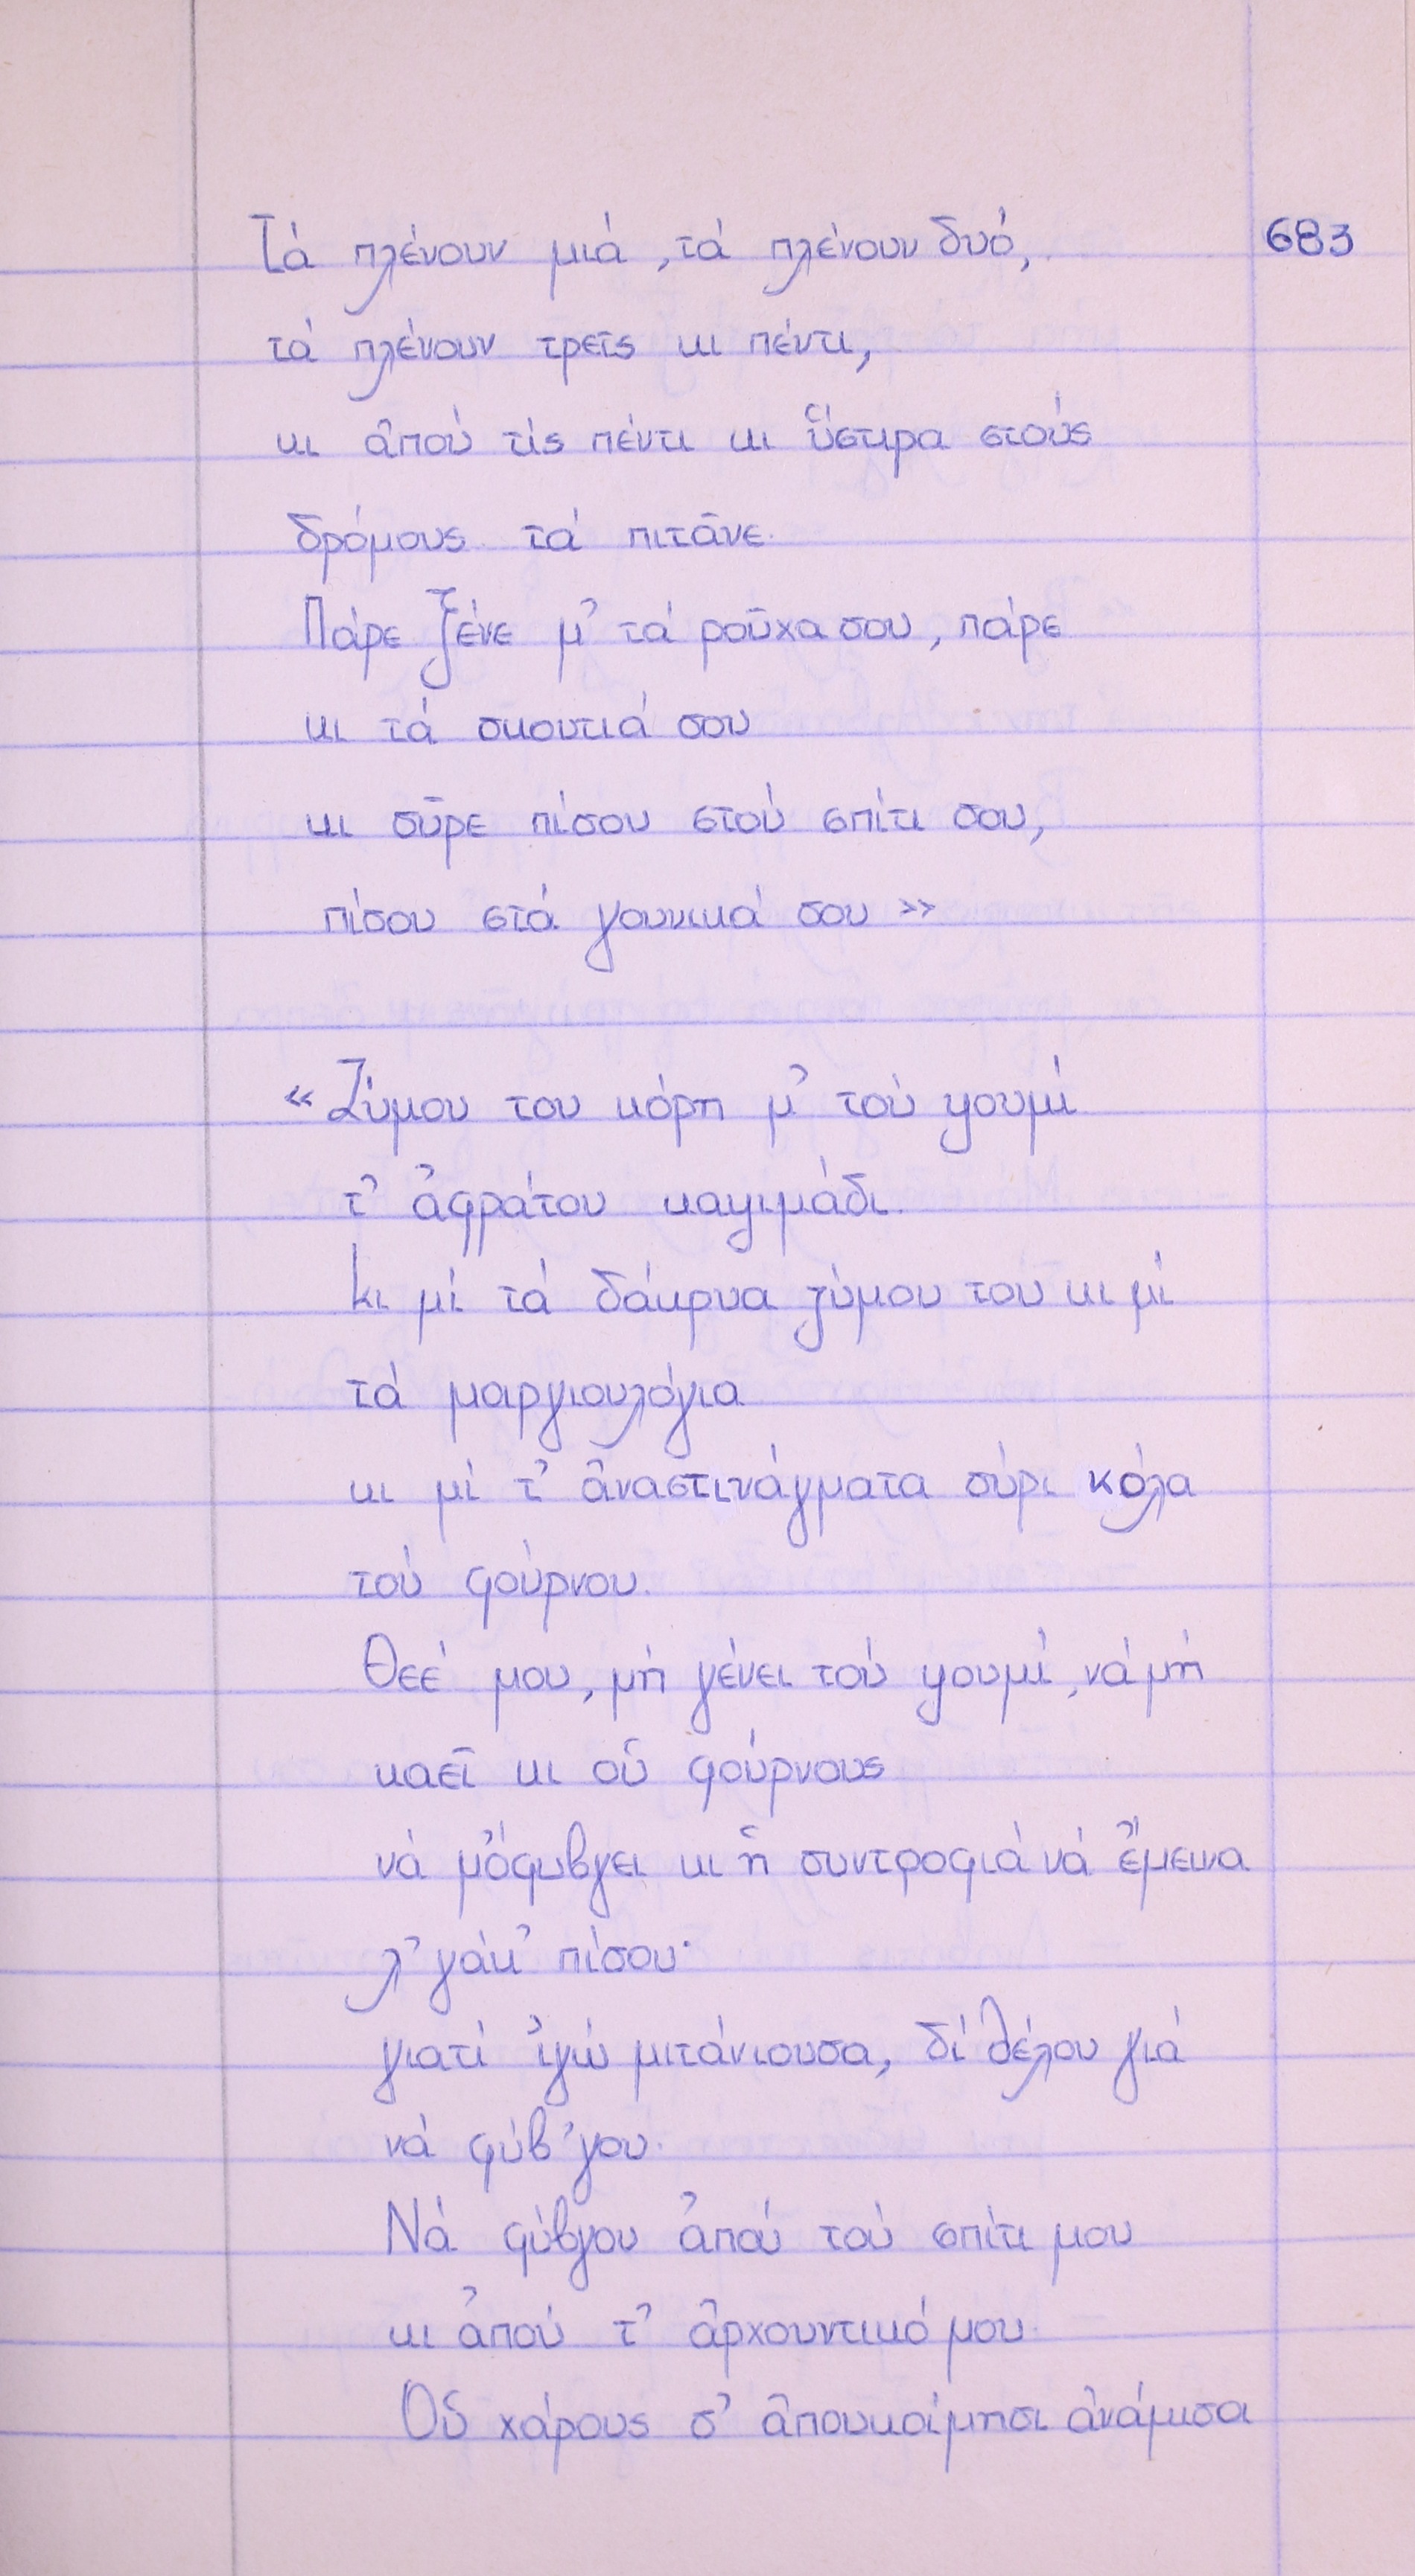 Τά πλένουν μιά, τά πλένουν δυό, 683
τά πλένουν τρεῖς κι πέντι,
κι ἀπού τίς πέντι κι ὕστιρα στούς
δρόμους τά πιτᾶνε.
Πάρε ξένε μ᾿ τά ροῦχα σου, πάρε
κι τά σκουτιά σου
κι σῦρε πίσου στού σπίτι σου,
πίσου στά γουνικά σου »
« Ζύμου του κόρη μ᾿ τού ψουμί
τ᾿ ἀφράτου καψιμάδι.
Κι μί τά δάκρυα ζύμου του κι μί
τά μαργιουλόγια
κι μί τ᾿ ἀναστινάγματα σύρι κόλα
τού φούρνου.
Θεέ μου, μή γένει τού ψουμί, νά μή
καεῖ κι οὑ φούρνους
νά μὄφυβγει κι ἡ συντροφιά νά ἔμεινα
λ᾿γάκ᾿ πίσου·
γιατί ἰγώ μιτάνιουσα, δί θέλου γιά
νά φύβ᾿γου.
Νά φύβγου ἀπού τού σπίτι μου
κι ἀπού τ᾿ ἀρχουντικό μου.
Οὑ χάρους σ᾿ ἀπουκοίμησι ἀνάμισα